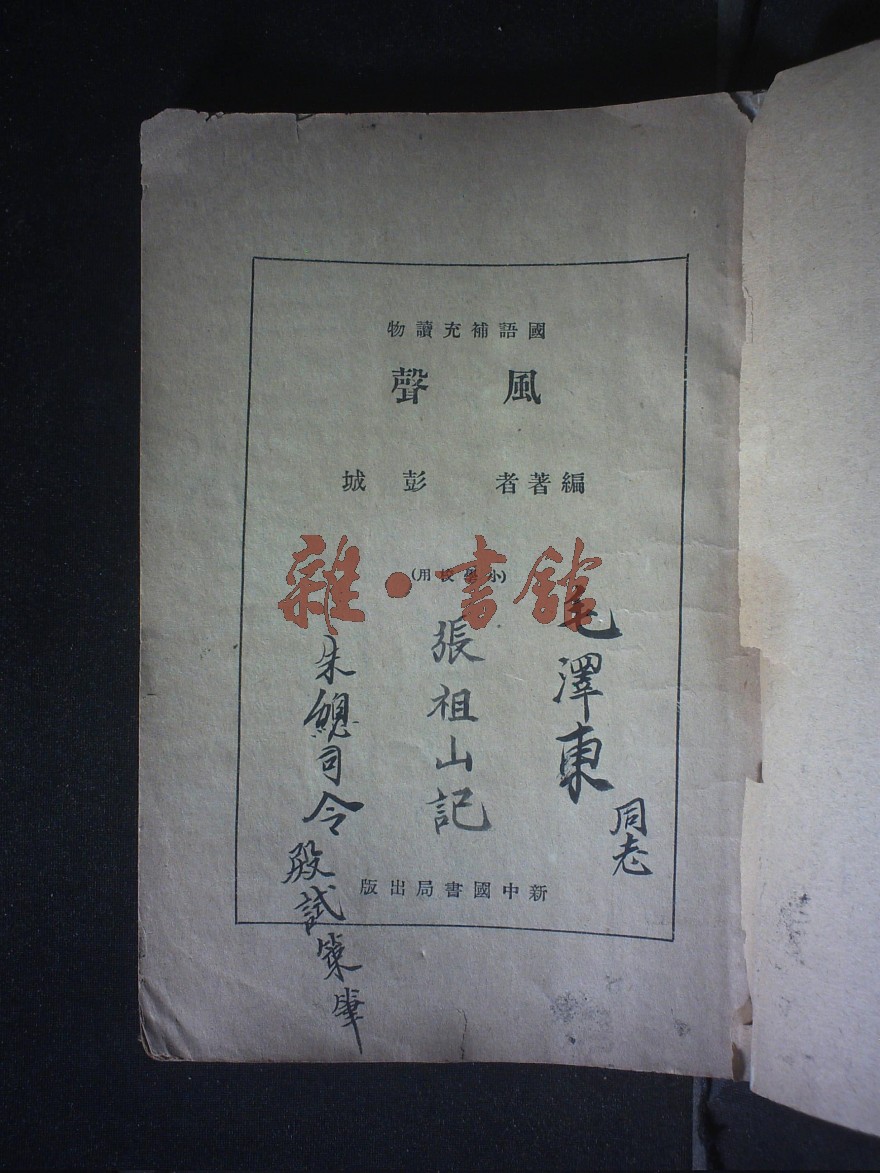 國語補充讀物
風聲
編著者 彭城
(小學校用)
雜·書館
毛澤東
同志
張祖山記
朱總司令
殿試策筆
新中國書局出版